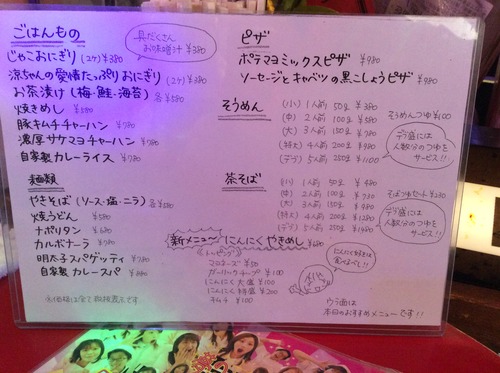 ごはんもの
具だくさん
お味噌汁 ¥380
じゃこおにぎり (2ケ) ¥380
涼ちゃんの愛情たっぷりおにぎり (2ケ) ¥380
お茶漬け (梅・鮭・海苔) 各¥580
焼きめし ¥580
豚キムチチャーハン ¥780
濃厚サケマヨチャーハン ¥780
自家製カレーライス ¥780
麺類
やきそば (ソース・塩・ニラ) 各¥580
焼うどん ¥580
ナポリタン ¥680
カルボナーラ ¥780
明太子スパゲッティ ¥780
自家製カレースパ ¥880
ピザ
ポテマヨミックスピザ ¥980
ソーセージとキャベツの黒こしょうピザ ¥980
そうめん
(小) 1人前 50g ¥380
(中) 2人前 100g ¥580
(大) 3人前 150g ¥780
(特大) 4人前 200g ¥980
(デブ) 5人前 250g ¥1100
そうめんつゆ ¥100
デブ盛には
人数分のつゆを
サービス!!
茶そば
(小) 1人前 50g ¥480
(中) 2人前 100g ¥730
(大) 3人前 150g ¥980
(特大) 4人前 200g ¥1280
(デブ) 5人前 250g ¥1480
そばつゆセット ¥230
デブ盛には
人数分のつゆを
サービス!!
新メニュー にんにくやきめし ¥680
《トッピング》
マヨネーズ ¥50
ガーリックチップ ¥100
にんにく大盛 ¥100
にんにく特盛 ¥200
キムチ ¥100
にんにく好きは
食べるべし!!
ウラ面は
本日のおすすめメニューです!!